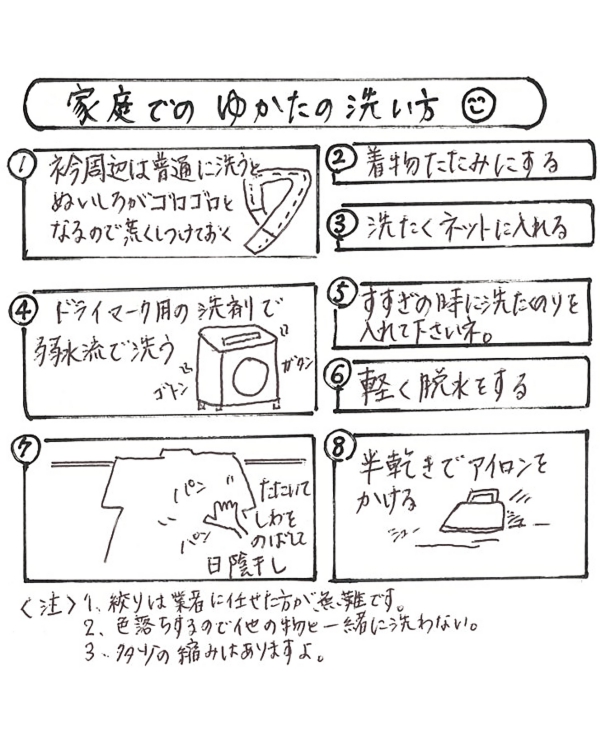 家庭での ゆかたの洗い方
① 衿周辺は普通に洗うと
ぬいしろがゴロゴロと
なるので荒くしつけておく
② 着物たたみにする
③ 洗たくネットに入れる
④ ドライマーク用の洗剤で
弱水流で洗う
ゴトン
ガタン
⑤ すすぎの時に洗たくのりを
入れて下さいネ。
⑥ 軽く脱水をする
⑦
パン
パン
たたいて
しわを
のばして
日陰干し
⑧ 半乾きでアイロンを
かける
シュー
シュー
〈注〉1、絞りは業者に任せた方が無難です。
2、色落ちするので他の物と一緒に洗わない。
3、多少の縮みはありますよ。